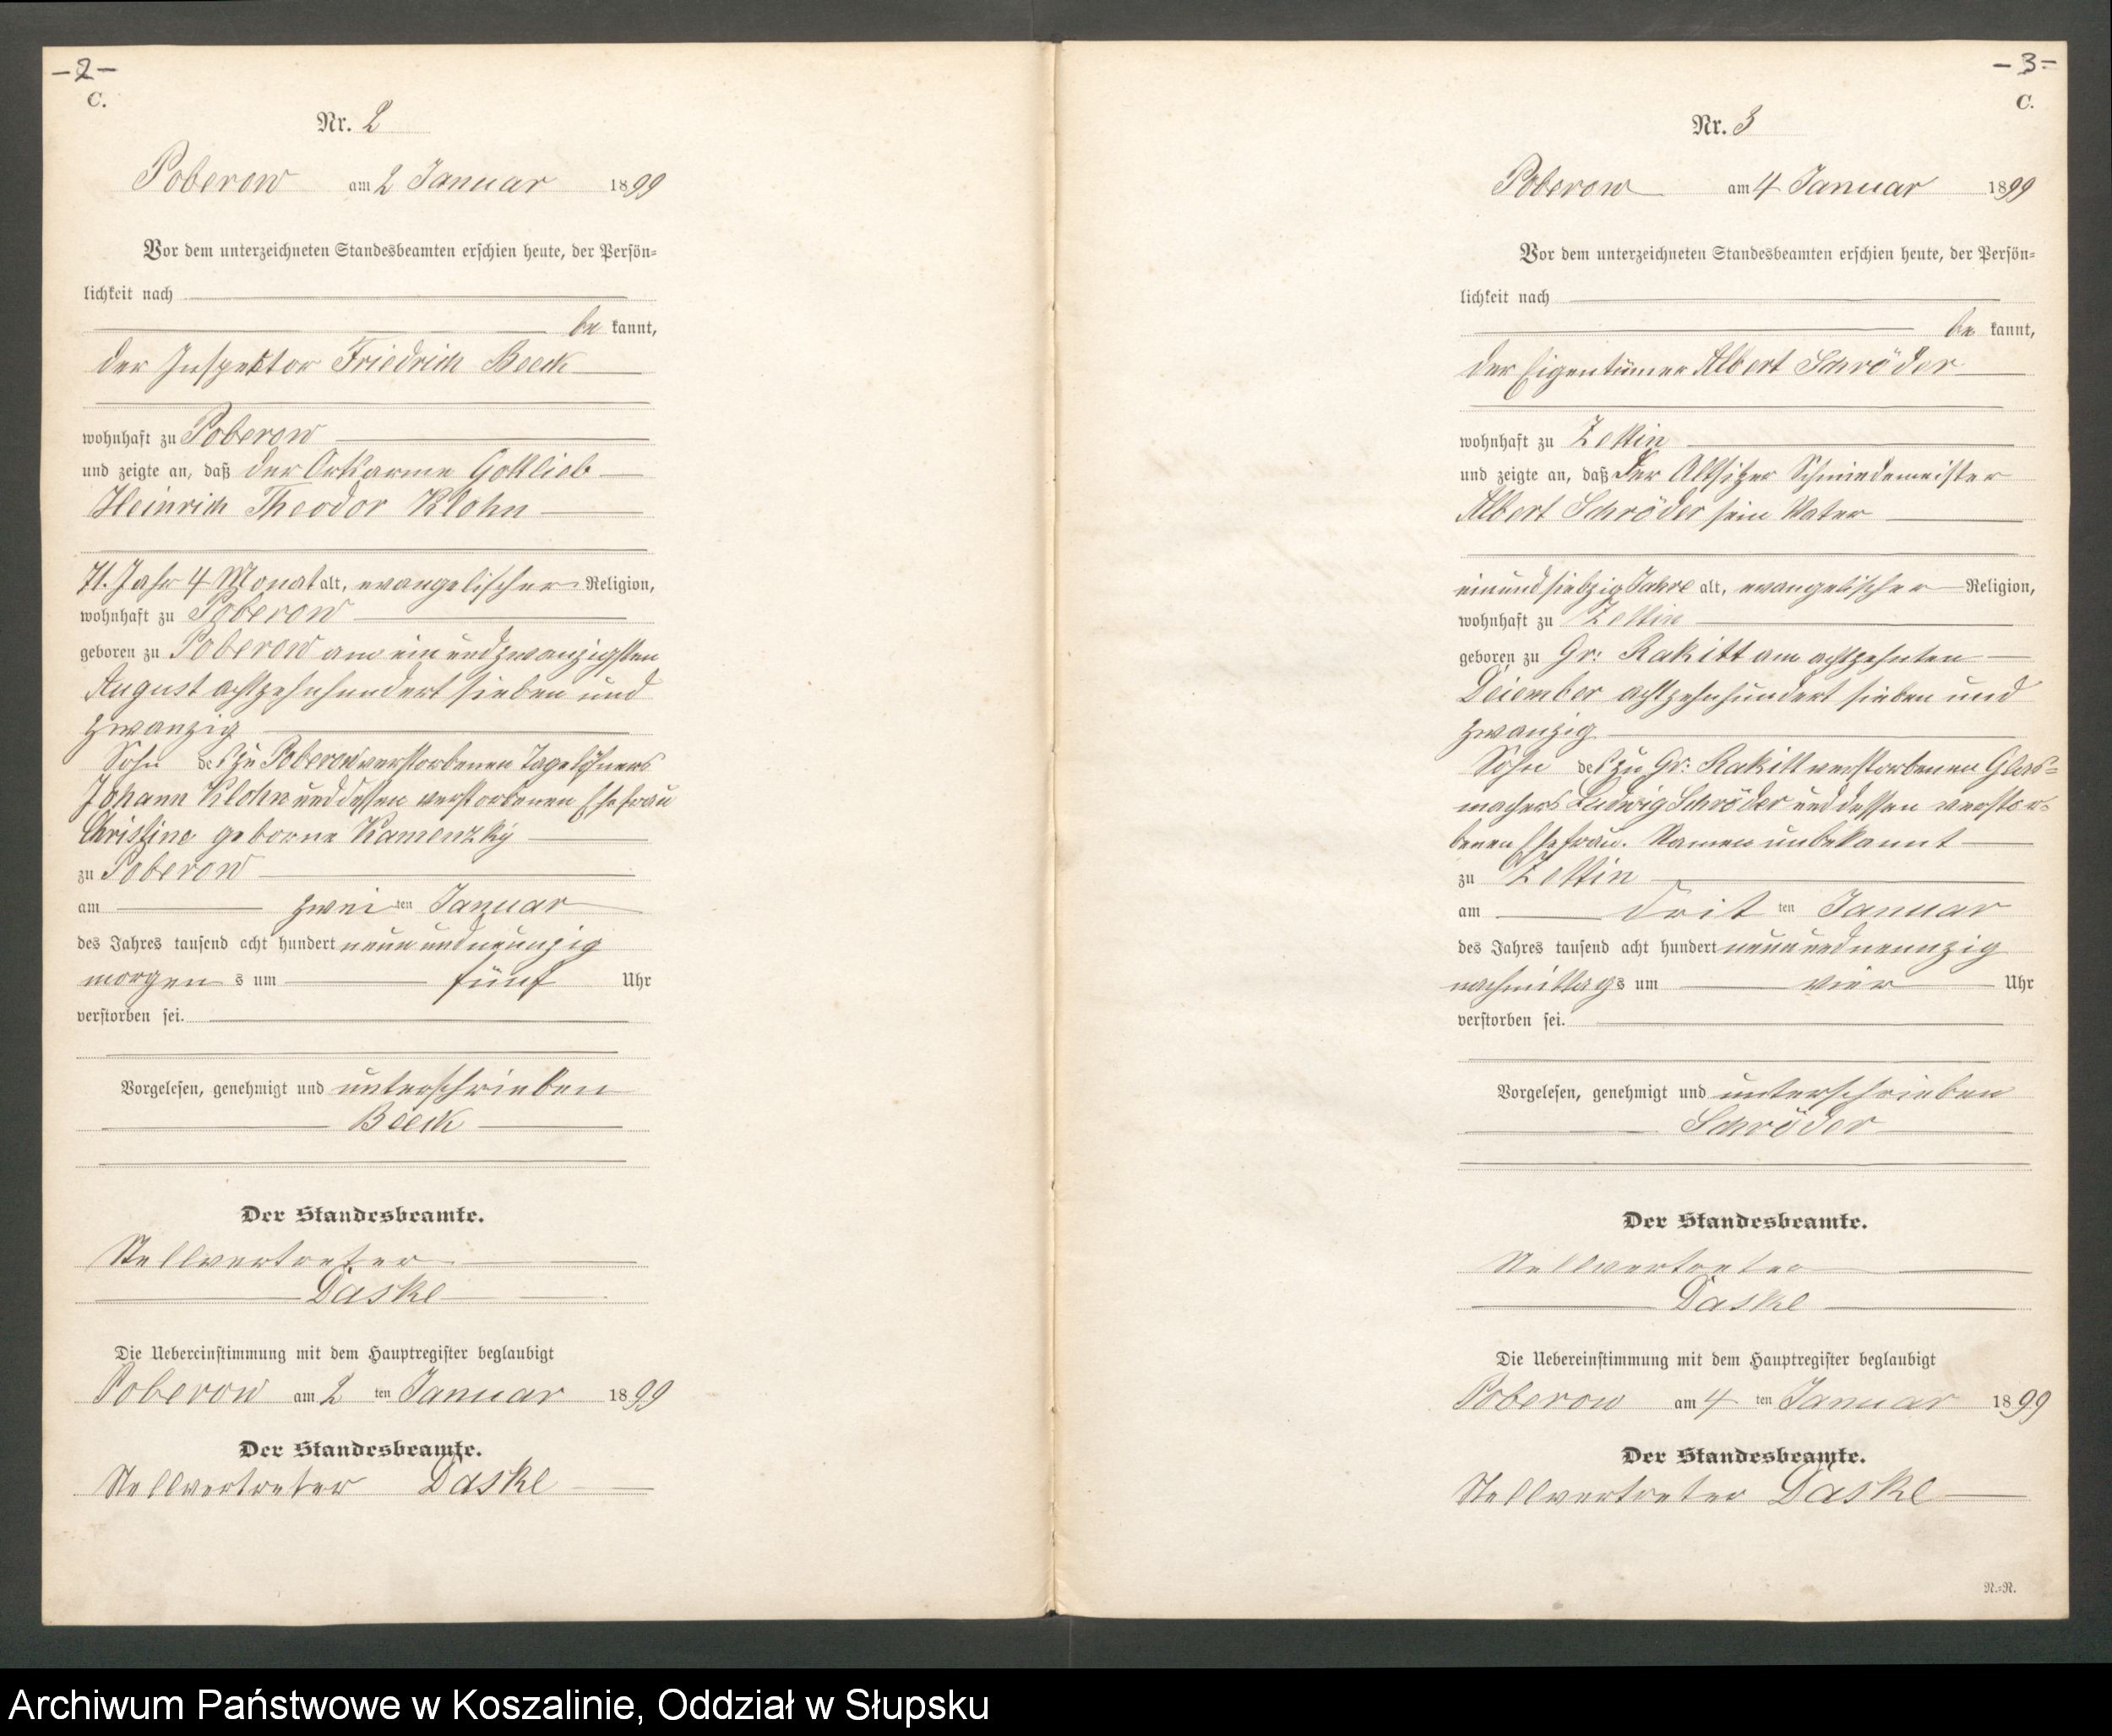 -2-
C.
Nr. 2
Poberow am 2 Januar 1899
Vor dem unterzeichneten Standesbeamten erschien heute, der Persön-
lichkeit nach
be kannt,
der Inspektor Friedrich Beeck
wohnhaft zu Poberow
und zeigte an, daß der Ortsarme Gottlieb
Heinrich Theodor Klohn
71. Jahr 4 Monat alt, evangelischer Religion,
wohnhaft zu Poberow
geboren zu Poberow am ein und zwanzigsten
August achtzehnhundert sieben und
zwanzig
Sohn des zu Poberow verstorbenen Tagelöhners
Johann Klohn und dessen verstorbenen Ehefrau
Christine geborne Kamenzky
zu Poberow
am zwei ten Januar
des Jahres tausend acht hundert neun und neunzig
morgen s um fünf Uhr
verstorben sei.
Vorgelesen, genehmigt und unterschrieben
Beeck
Der Standesbeamte.
Stellvertreter
Daske
Die Uebereinstimmung mit dem Hauptregister beglaubigt
Poberow am 2 ten Januar 1899
Der Standesbeamte.
Stellvertreter Daske
-3-
C.
Nr. 3
Poberow am 4 Januar 1899
Vor dem unterzeichneten Standesbeamten erschien heute, der Persön-
lichkeit nach
be kannt,
der Eigentümer Albert Schröder
wohnhaft zu Zettin
und zeigte an, daß der Altsitzer Schmiedemeister
Albert Schröder sein Vater
einundsiebzig Jahre alt, evangelischer Religion,
wohnhaft zu Zettin
geboren zu Gr: Rakitt am achtzehnten
Dezember achtzehnhundert sieben und
zwanzig
Sohn des zu Gr: Rakitt verstorbenen Glas-
machers Ludwig Schröder und dessen verstor-
benen Ehefrau. Namen unbekannt
zu Zettin
am drit ten Januar
des Jahres tausend acht hundert neun und neunzig
nachmittag s um vier Uhr
verstorben sei.
Vorgelesen, genehmigt und unterschrieben
Schröder
Der Standesbeamte.
Stellvertreter
Daske
Die Uebereinstimmung mit dem Hauptregister beglaubigt
Poberow am 4 ten Januar 1899
Der Standesbeamte.
Stellvertreter Daske
N.=N.
Archiwum Państwowe w Koszalinie, Oddział w Słupsku